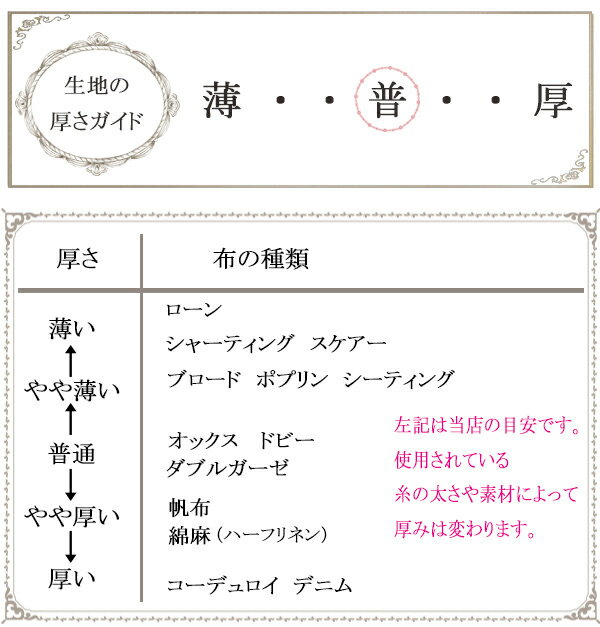 生地の
厚さガイド
薄・・普・・厚
厚さ 布の種類
薄い
やや薄い
普通
やや厚い
厚い
ローン
シャーティング スケアー
ブロード ポプリン シーティング
オックス ドビー
ダブルガーゼ
帆布
綿麻(ハーフリネン)
コーデュロイ デニム
左記は当店の目安です。
使用されている
糸の太さや素材によって
厚みは変わります。